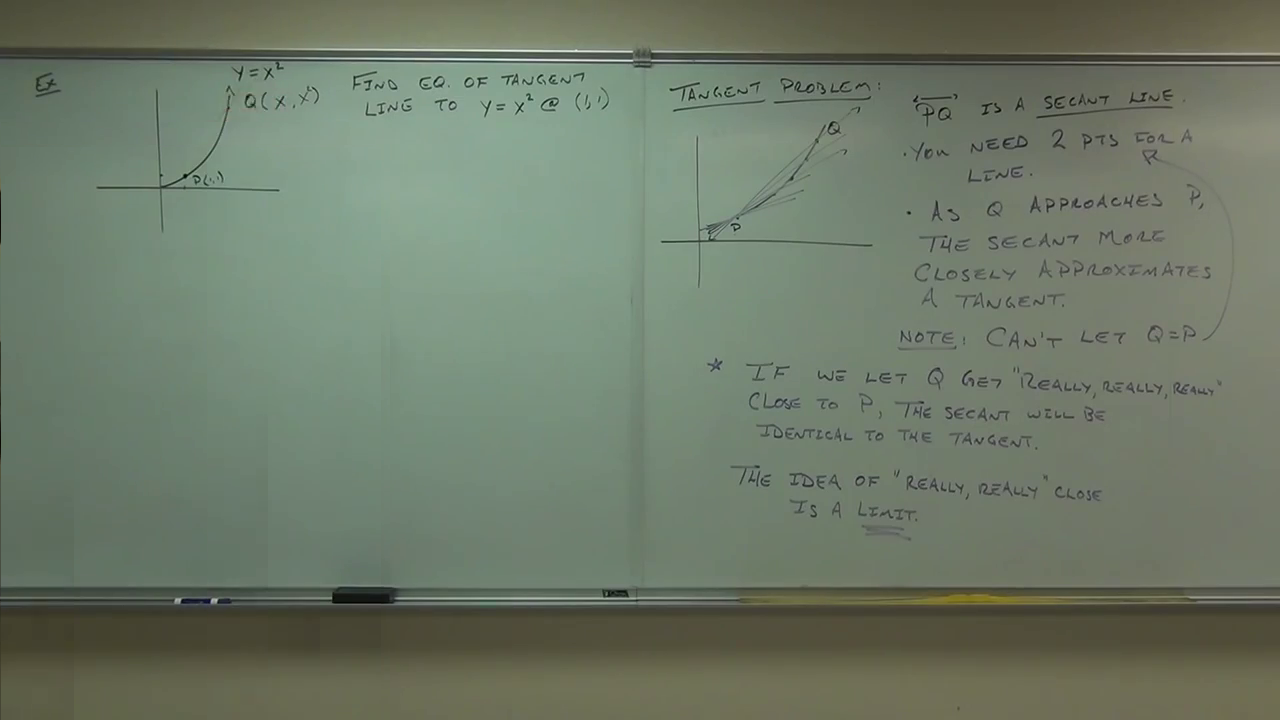 Ex
Y = X²
Q(X, X²)
P(1,1)
FIND EQ. OF TANGENT
LINE TO Y = X² @ (1,1)
TANGENT PROBLEM:
Q
P
PQ IS A SECANT LINE.
• YOU NEED 2 PTS FOR A
LINE.
• AS Q APPROACHES P,
THE SECANT MORE
CLOSELY APPROXIMATES
A TANGENT.
NOTE: CAN'T LET Q=P
* IF WE LET Q GET "REALLY, REALLY, REALLY"
CLOSE TO P, THE SECANT WILL BE
IDENTICAL TO THE TANGENT.
THE IDEA OF "REALLY, REALLY" CLOSE
IS A LIMIT.